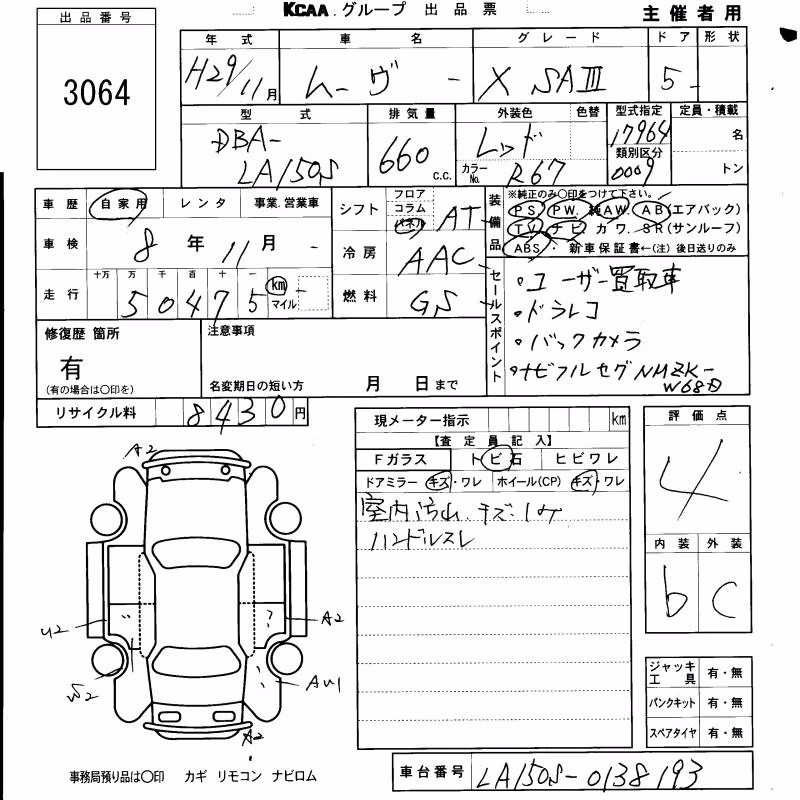 出品番号
3064
KCAA グループ 出品票
主催者用
年式 車名 グレード ドア 形状
H29/11月 ムーヴ - X SAIII 5 -
型式 排気量 外装色 色替 型式指定 定員・積載
DBA-
LA150S
660 c.c.
レッド
カラーNo. R67
17964
類別区分
0009
名
トン
車歴 自家用 レンタ 事業.営業車
車検 8年 11月 -
走行 十万 万 千 百 十 一
50475 km マイル -
シフト フロア コラム パネル AT
冷房 AAC
燃料 GS
装備品
※純正のみ○印をつけて下さい。
PS PW 純AW AB(エアバック)
TV ナビ カワ SR(サンルーフ)
ABS ・ 新車保証書←(注)後日送りのみ
セールスポイント
・ユーザー買取車
・ドラレコ
・バックカメラ
・ナビフルセグNMZK-
W68D
修復歴 箇所
有
(有の場合は○印を)
注意事項
名変期日の短い方 月 日まで
リサイクル料 8430円
現メーター指示 km
【査定員記入】
Fガラス トビ石 ヒビワレ
ドアミラー キズ・ワレ ホイール(CP) キズ・ワレ
室内汚れ.キズ.シミ
ハンドルスレ
評価点
4
内装 外装
b C
ジャッキ工具 有・無
パンクキット 有・無
スペアタイヤ 有・無
A2
U2
A2
W2
AU1
A2
事務局預り品は○印 カギ リモコン ナビロム
車台番号 LA150S-0138193